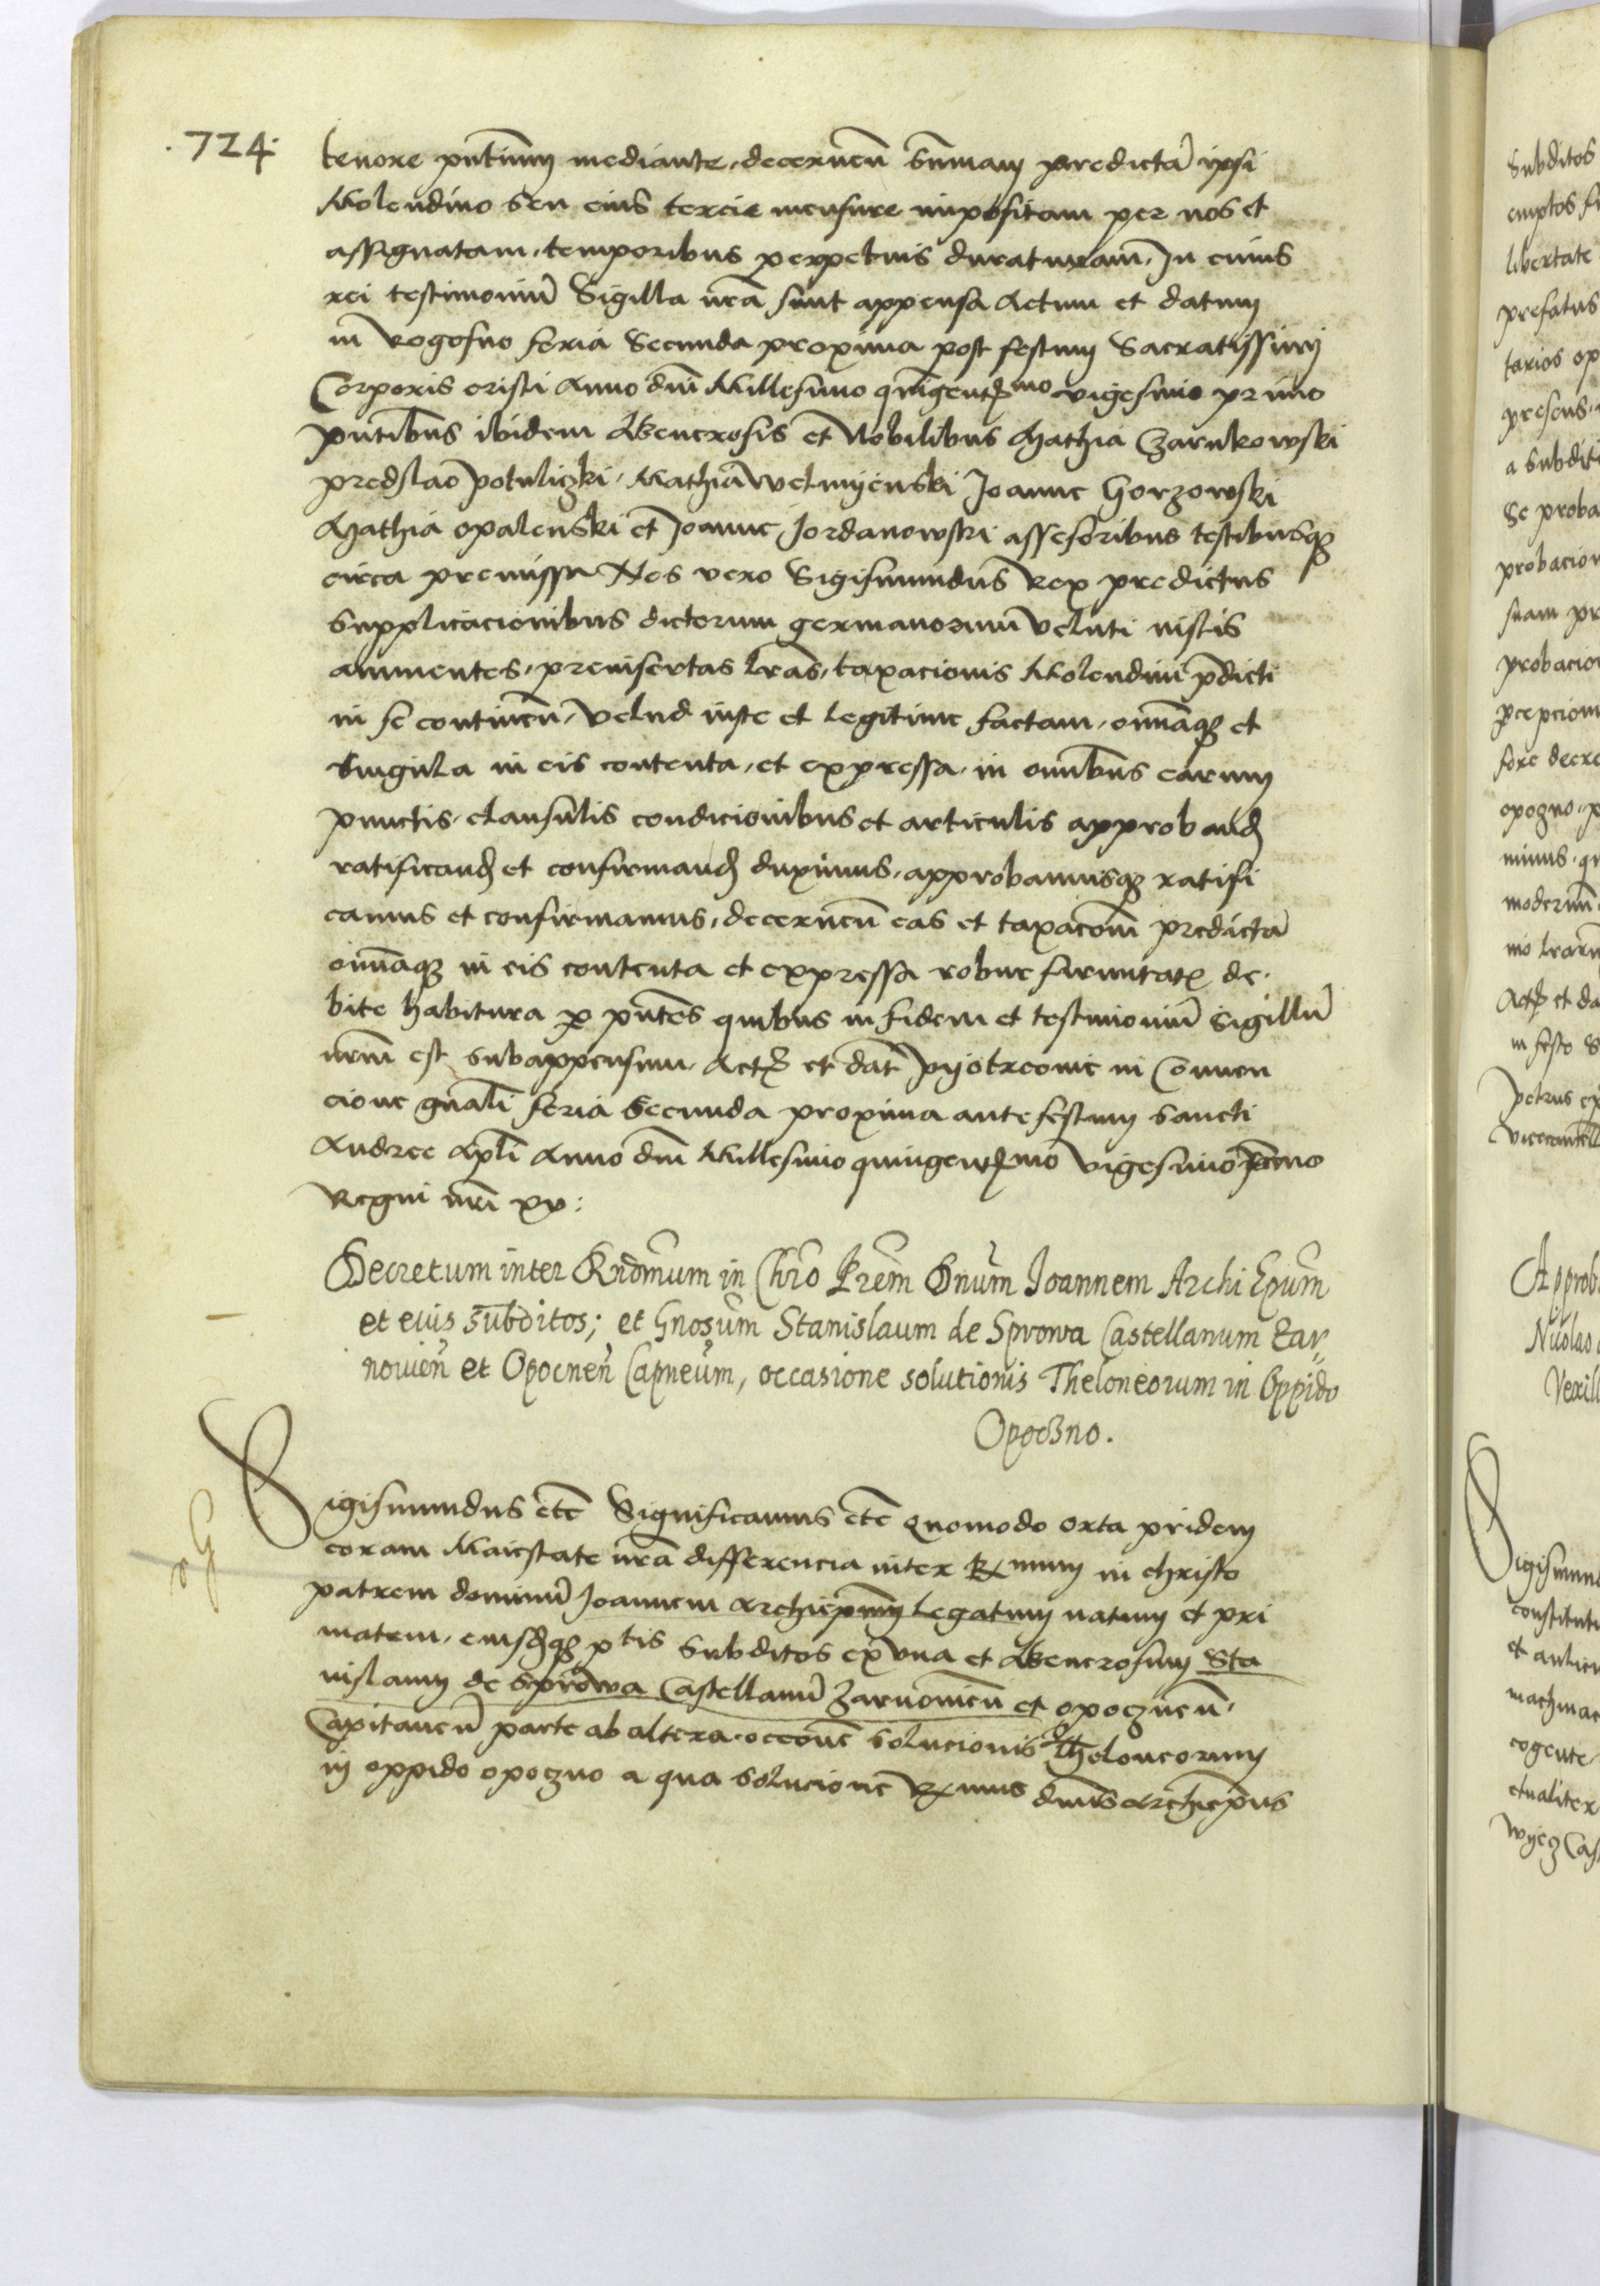 .724.
tenore pntium mediante, decernen summam predictam ipsi
Molendino seu eius tercie mensure impositam per nos et
assignatam, temporibus perpetuis duraturam, In cuius
rei testimonium Sigilla nra sunt appensa Actum et datum
in Rogosno feria Secunda proxima post festum Sacratissimi
Corporis cristi Anno dni Millesimo quingentmo vigesimo primo
pntibus ibidem Generosis et Nobilibus Mathia Czarnkowski
predslao potuliczki, Mathia welmyenski Joanne Gorzowski
Mathia opalenski et Joanne Jordanowski assessoribus testibusq
circa premissa Nos vero Sigismundus Rex predictus
Supplicacionibus dictorum germanorum veluti iustis
annuentes, preinsertas lras, taxacionis Molendini pdicti
in se continen, velud iuste et legitime factam, omniaq et
Singula in eis contenta, et expressa, in omnibus earum
punctis, clausulis condicionibus et articulis approband
ratificand et confirmand duximus, approbamusq ratifi
camus et confirmamus, decernen eas et taxacom predicta
omniaq in eis contenta et expressa robur firmitatis de-
bite habitura p pntes quibus in fidem et testimonium Sigillum
nrum est subappensum. Act et dat pyotrcouie in Conuen
cione gnali feria Secunda proxima ante festum Sancti
Andree apli Anno dni Millesimo quingentmo vigesimo primo
Regni nri xv:
Decretum inter Rndmum in Chro Prem Dnum Joannem Archi Epum
et eius subditos; et Gnosum Stanislaum de Sprowa Castellanum Zar,,
nouien et Opocnen Capneum, occasione solutionis Theloneorum in Oppido
Opoczno.
Sigismundus etc Significamus etc Quomodo orta pridem
coram Maiestate nra differencia inter Rmum in christo
patrem dominum Joannem archiepum Legatum natum et pri
matem, eiusdq ptis Subditos ex vna et Generosum Sta
nislaum de Sprowa Castellanum Zarnouien et opocznen,
Capitaneum parte ab altera, occone Solucionis Theloneorum
in oppido opoczno a qua Solucione Rmus dnus archiepus
Subditos
libertate
prefatus
tarios
presens
a subditi
Se proba
suam